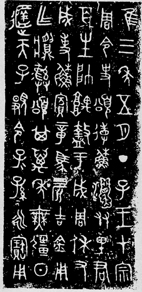 隹三年五月丁子王才宗
周令史頌省蘇姻友里君
百生帥堣盩于成周休又
成事蘇賓章馬四匹吉金用
乍彝頌其萬年無疆日
天子顯令子子孫孫永寶用